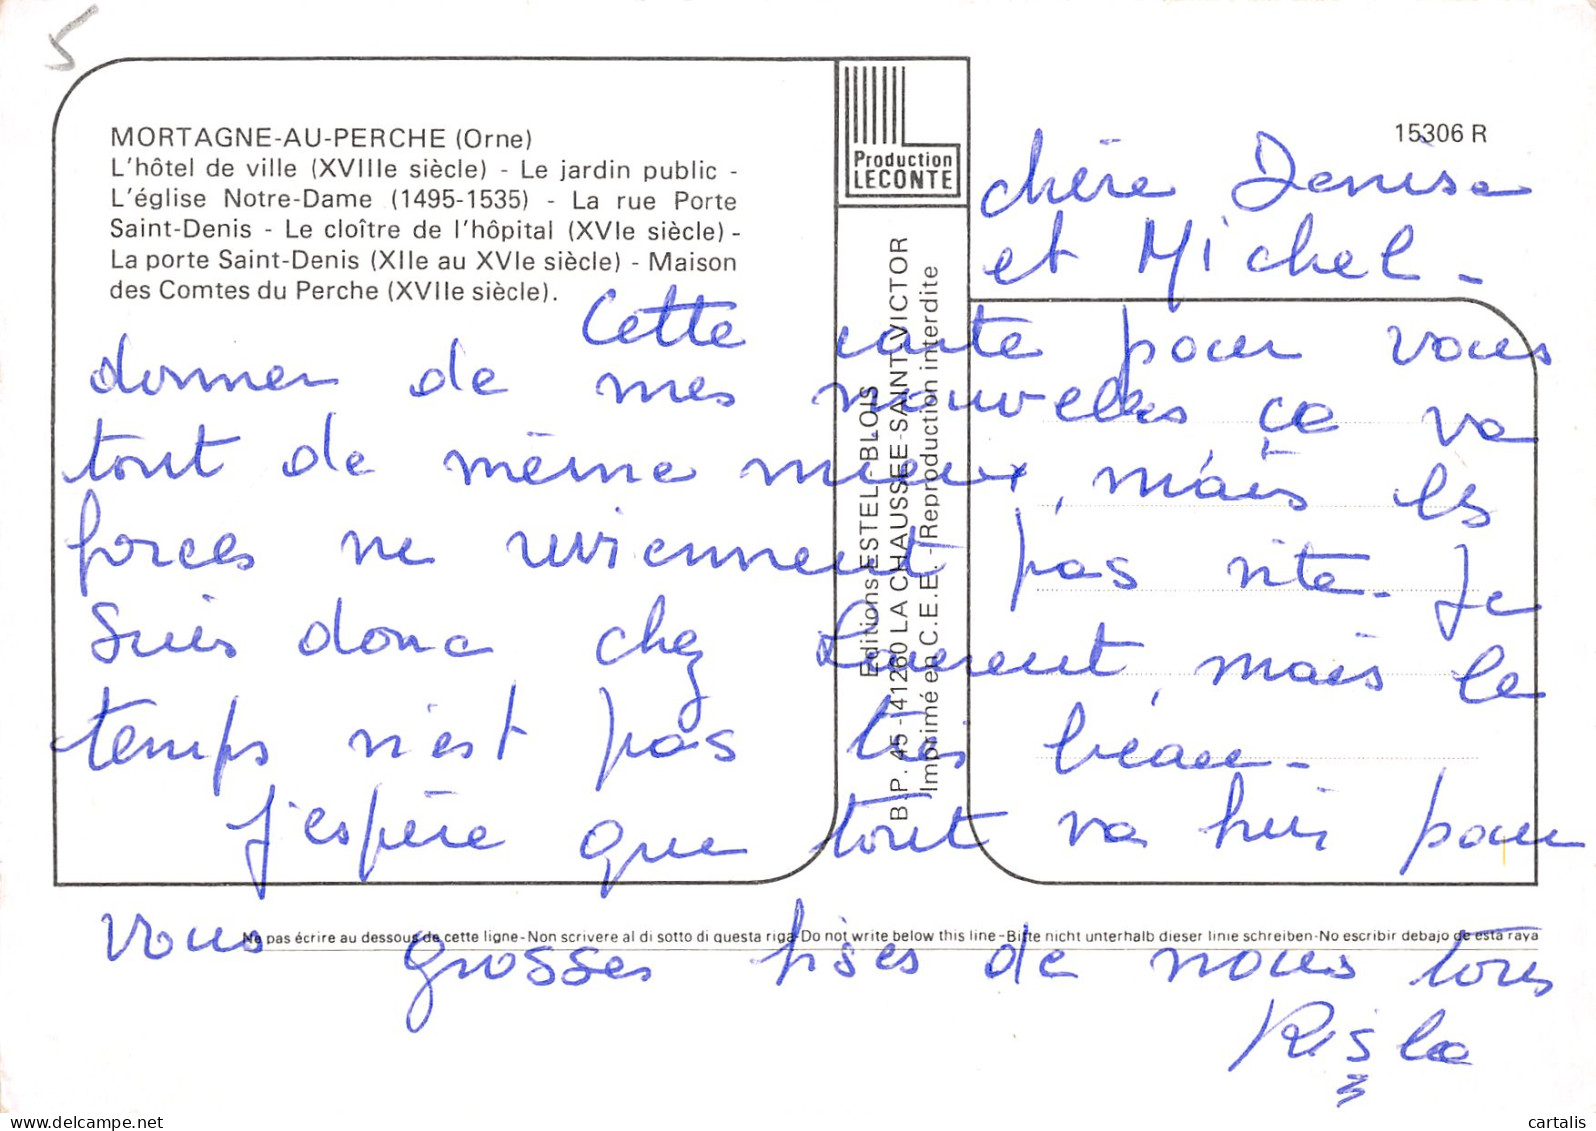 5
MORTAGNE-AU-PERCHE (Orne)
L'hôtel de ville (XVIIIe siècle) - Le jardin public -
L'église Notre-Dame (1495-1535) - La rue Porte
Saint-Denis - Le cloître de l'hôpital (XVIe siècle) -
La porte Saint-Denis (XIIe au XVIe siècle) - Maison
des Comtes du Perche (XVIIe siècle).
Production
LECONTE
15306 R
Editions ESTEL - BLOIS
B.P. 45 - 41260 LA CHAUSSEE-SAINT-VICTOR
Imprimé en C.E.E. - Reproduction interdite
chère Denise
et Michel -
Cette carte pour vous
donner de mes nouvelles, ça va
tout de même mieux, mais les
forces ne reviennent pas vite. Je
suis donc chez Laurent, mais le
temps n'est pas très beau -
J'espère que tout va bien pour
vous
Ne pas écrire au dessous de cette ligne - Non scrivere al di sotto di questa riga - Do not write below this line - Bitte nicht unterhalb dieser linie schreiben - No escribir debajo de esta raya
grosses bises de nous tous
cartalis
delcampe.net